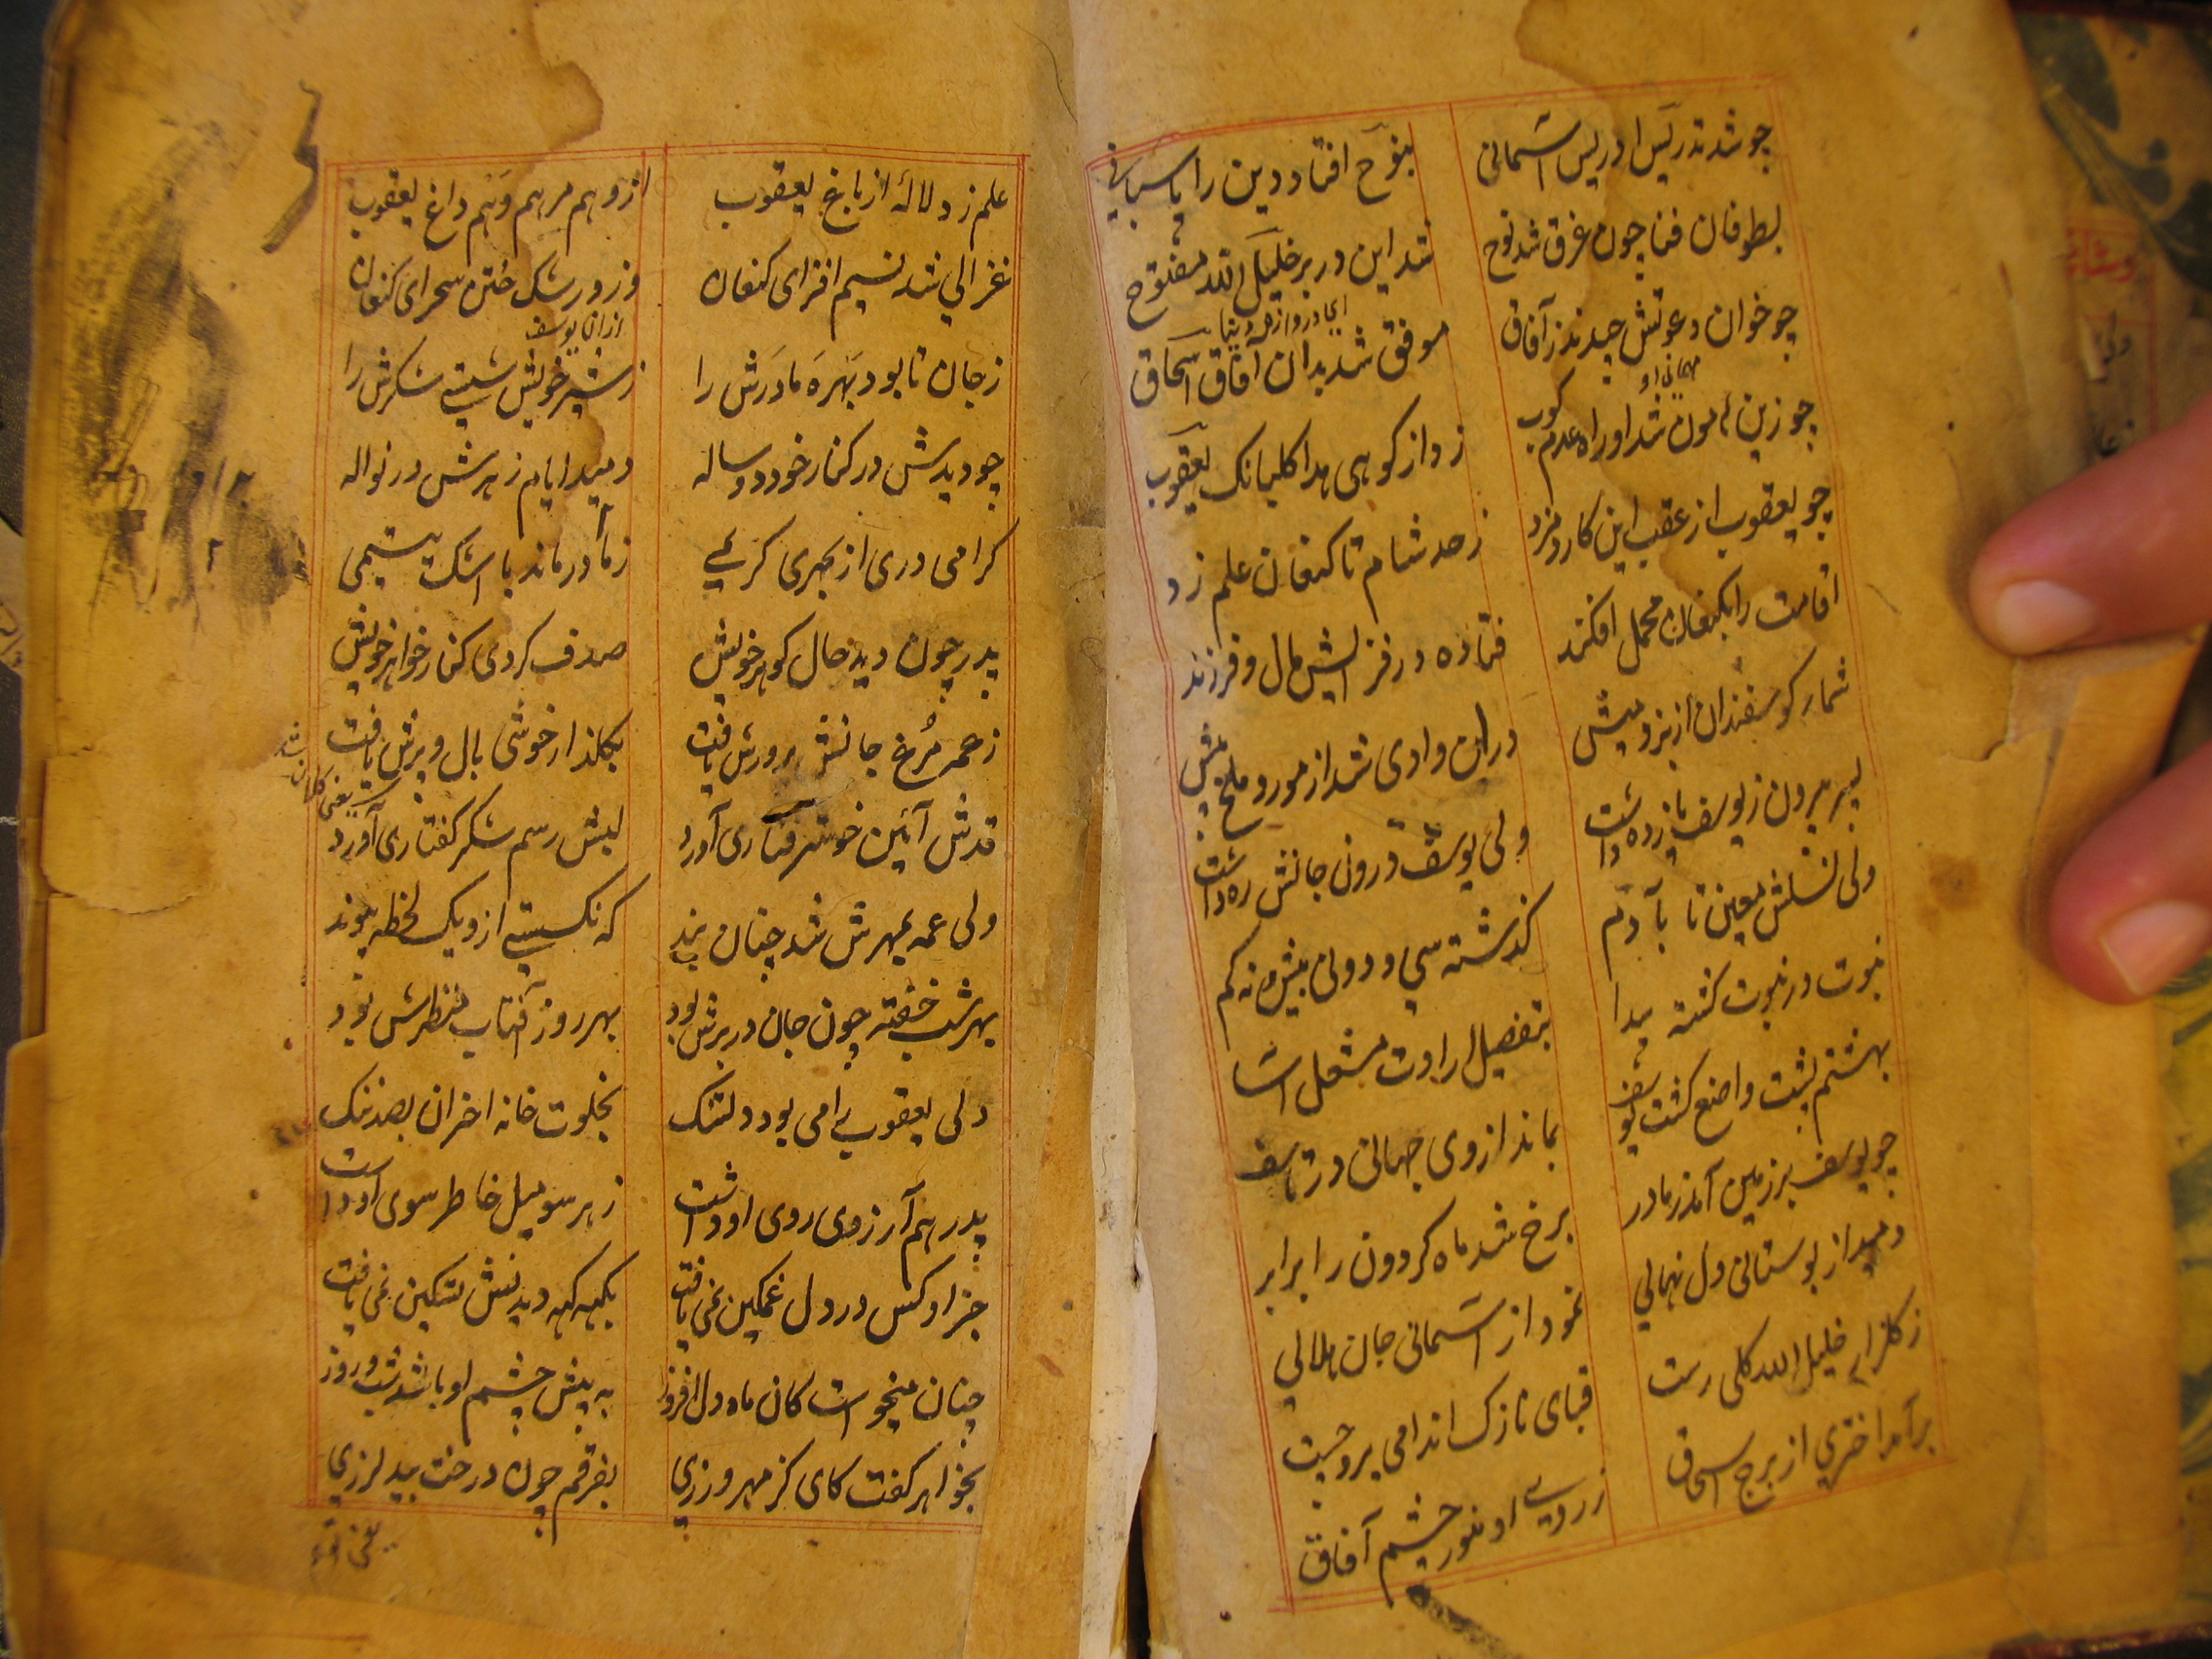 چو شد تدریس ادریس آسمانی بنوح افتاد دین را پاسبانی
بطوفان فنا چون غرق شد نوح شد این در بر خلیل الله مفتوح
چو خوان دعوتش چیدند ز آفاق موفق شد بدان آفاق اسحاق
مهمانی او
چو زین هامون شد او راه عدم کوب زد از کوهی هدا کلبانک یعقوب
چو یعقوب از عقب این کار دم زد ز حد شام تا کنعان علم زد
اقامت را بکنعان محمل افکند فتاده در فزایش مال و فرزند
شمار کوسفندان از بز و میشی در ان وادی شد از مور و ملخ بیش
پسر بیرون ز یوسف یازده داشت ولی یوسف درون جانش ره داشت
ولی نسلش معین تا بآدم کذشته سی و دو ولی بیش و نه کم
نبوت در نبوت کشته پیدا بتفصیل ار اوت مشعل آسا
بهشتم پشت واضع کشت یوسف بماند از وی جهانی در تاسف
چو یوسف بر زمین آمد ز مادر برخ شد ماه کردون را برابر
دمید از بوستانی دل نهالی نمود از آسمانی جان هلالی
ز کلزار خلیل الله کلی رست قبای نازک اندامی برو چست
برآمد اختری از برج اسحاق ز روی او منور چشم آفاق
علم زد لالهٔ از باغ یعقوب ازو هم مرهم و هم داغ یعقوب
غزالی شد نسیم افزای کنعان وزو در رشک ختن سحرای کنعان
ازان یوسف
ز جان تا بود بهره مادرش را ز شیر خویش شستی شکرش را
چو دیدش در کنار خود دو ساله دمید ایام زهرش در نواله
کرامی دری از بحری کریمی ز مادر ماند با اشک یتیمی
پدر چون دید حال کوهر خویش صدف کردی کنار خواهر خویش
ز عمه مرغ جانش پرورش یافت بکلذار خوشی بال و پرش یافت
قدش آئین خوشرفتاری آورد لبش رسم شکر کفتاری آورد
ولی عمه بمهرش شد چنان بند که نکسستی ازو یک لحظه پیوند
بهر شب خفته چون جان در برش بود بهر روز آفتاب منظرش بود
دلی یعقوب را می بود دلتنک بخلوت خانه احزان بصد ننک
پدر هم آرزوی روی او داشت ز هر سو میل خاطر سوی او داشت
جز او کس در دل غمکین نمی یافت بکهه کهه دیدنش تسکین نمی یافت
چنان میخواست کان ماه دل افروز به پیش چشم او باشد شب و روز
بخواهر کفت کای کز مهر ورزی بفرقم چون درخت بید لرزی